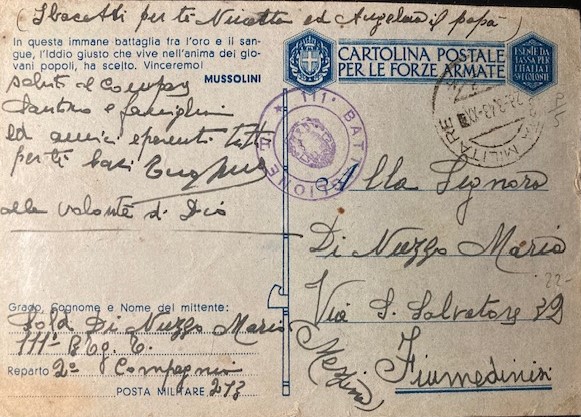 (Sbacetti per te Nicetta ed Angelina il papà)
In questa immane battaglia fra l'oro e il san-
gue, l'Iddio giusto che vive nell'anima dei gio-
vani popoli, ha scelto. Vinceremo!
MUSSOLINI
saluto il Compay
Santoro e famiglia
ed amici e parenti tutti
per ti baci
alla volontà di Dio
Grado, Cognome e Nome del mittente:
Sold. Di Nuzzo Mario
111° Btg. C.
Reparto 2ª Compagnia
POSTA MILITARE 213
CARTOLINA POSTALE
PER LE FORZE ARMATE
ESENTE DA
TASSA PER
L'ITALIA E
SUE COLONIE
111° BATTAGLIONE
POSTA MILITARE
Alla Signora
Di Nuzzo Maria
Via S. Salvatore 32
Fiumedinisi
(Messina)
22-